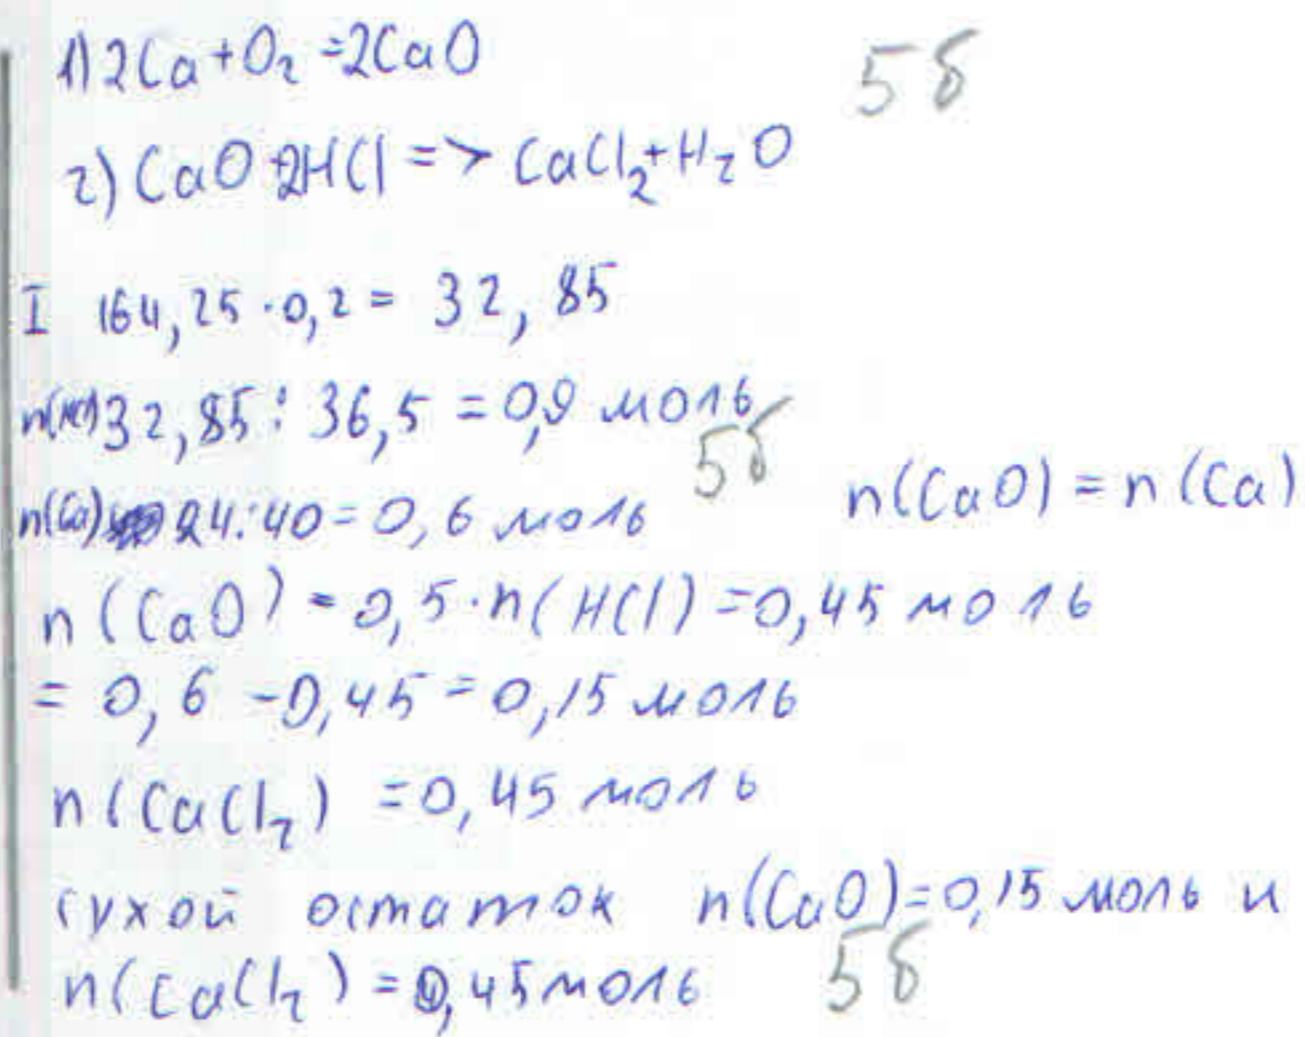 1) 2Ca+O₂=2CaO
5б
2) CaO+2HCl => CaCl₂+H₂O
I 164,25·0,2= 32,85
n(HCl) 32,85:36,5=0,9 моль
5б
n(Ca) 24:40=0,6 моль n(CaO)=n(Ca)
n(CaO)=0,5·n(HCl)=0,45 моль
= 0,6-0,45=0,15 моль
n(CaCl₂)=0,45 моль
сухой остаток n(CaO)=0,15 моль и
n(CaCl₂)=0,45 моль 5б